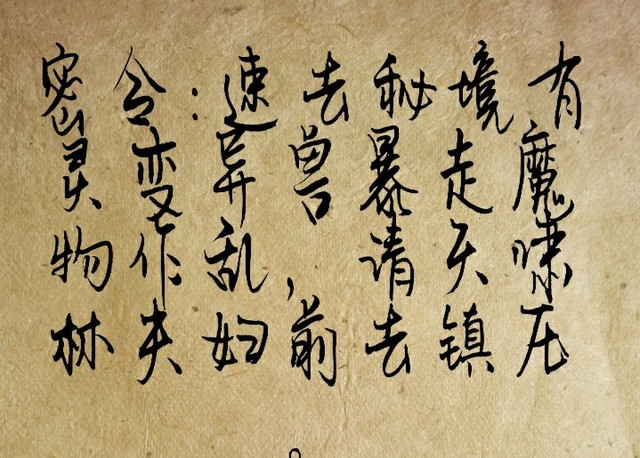 密令：速去秘境有
灵变异兽暴走魔
物作乱，请天啸
林夫妇前去镇压
。